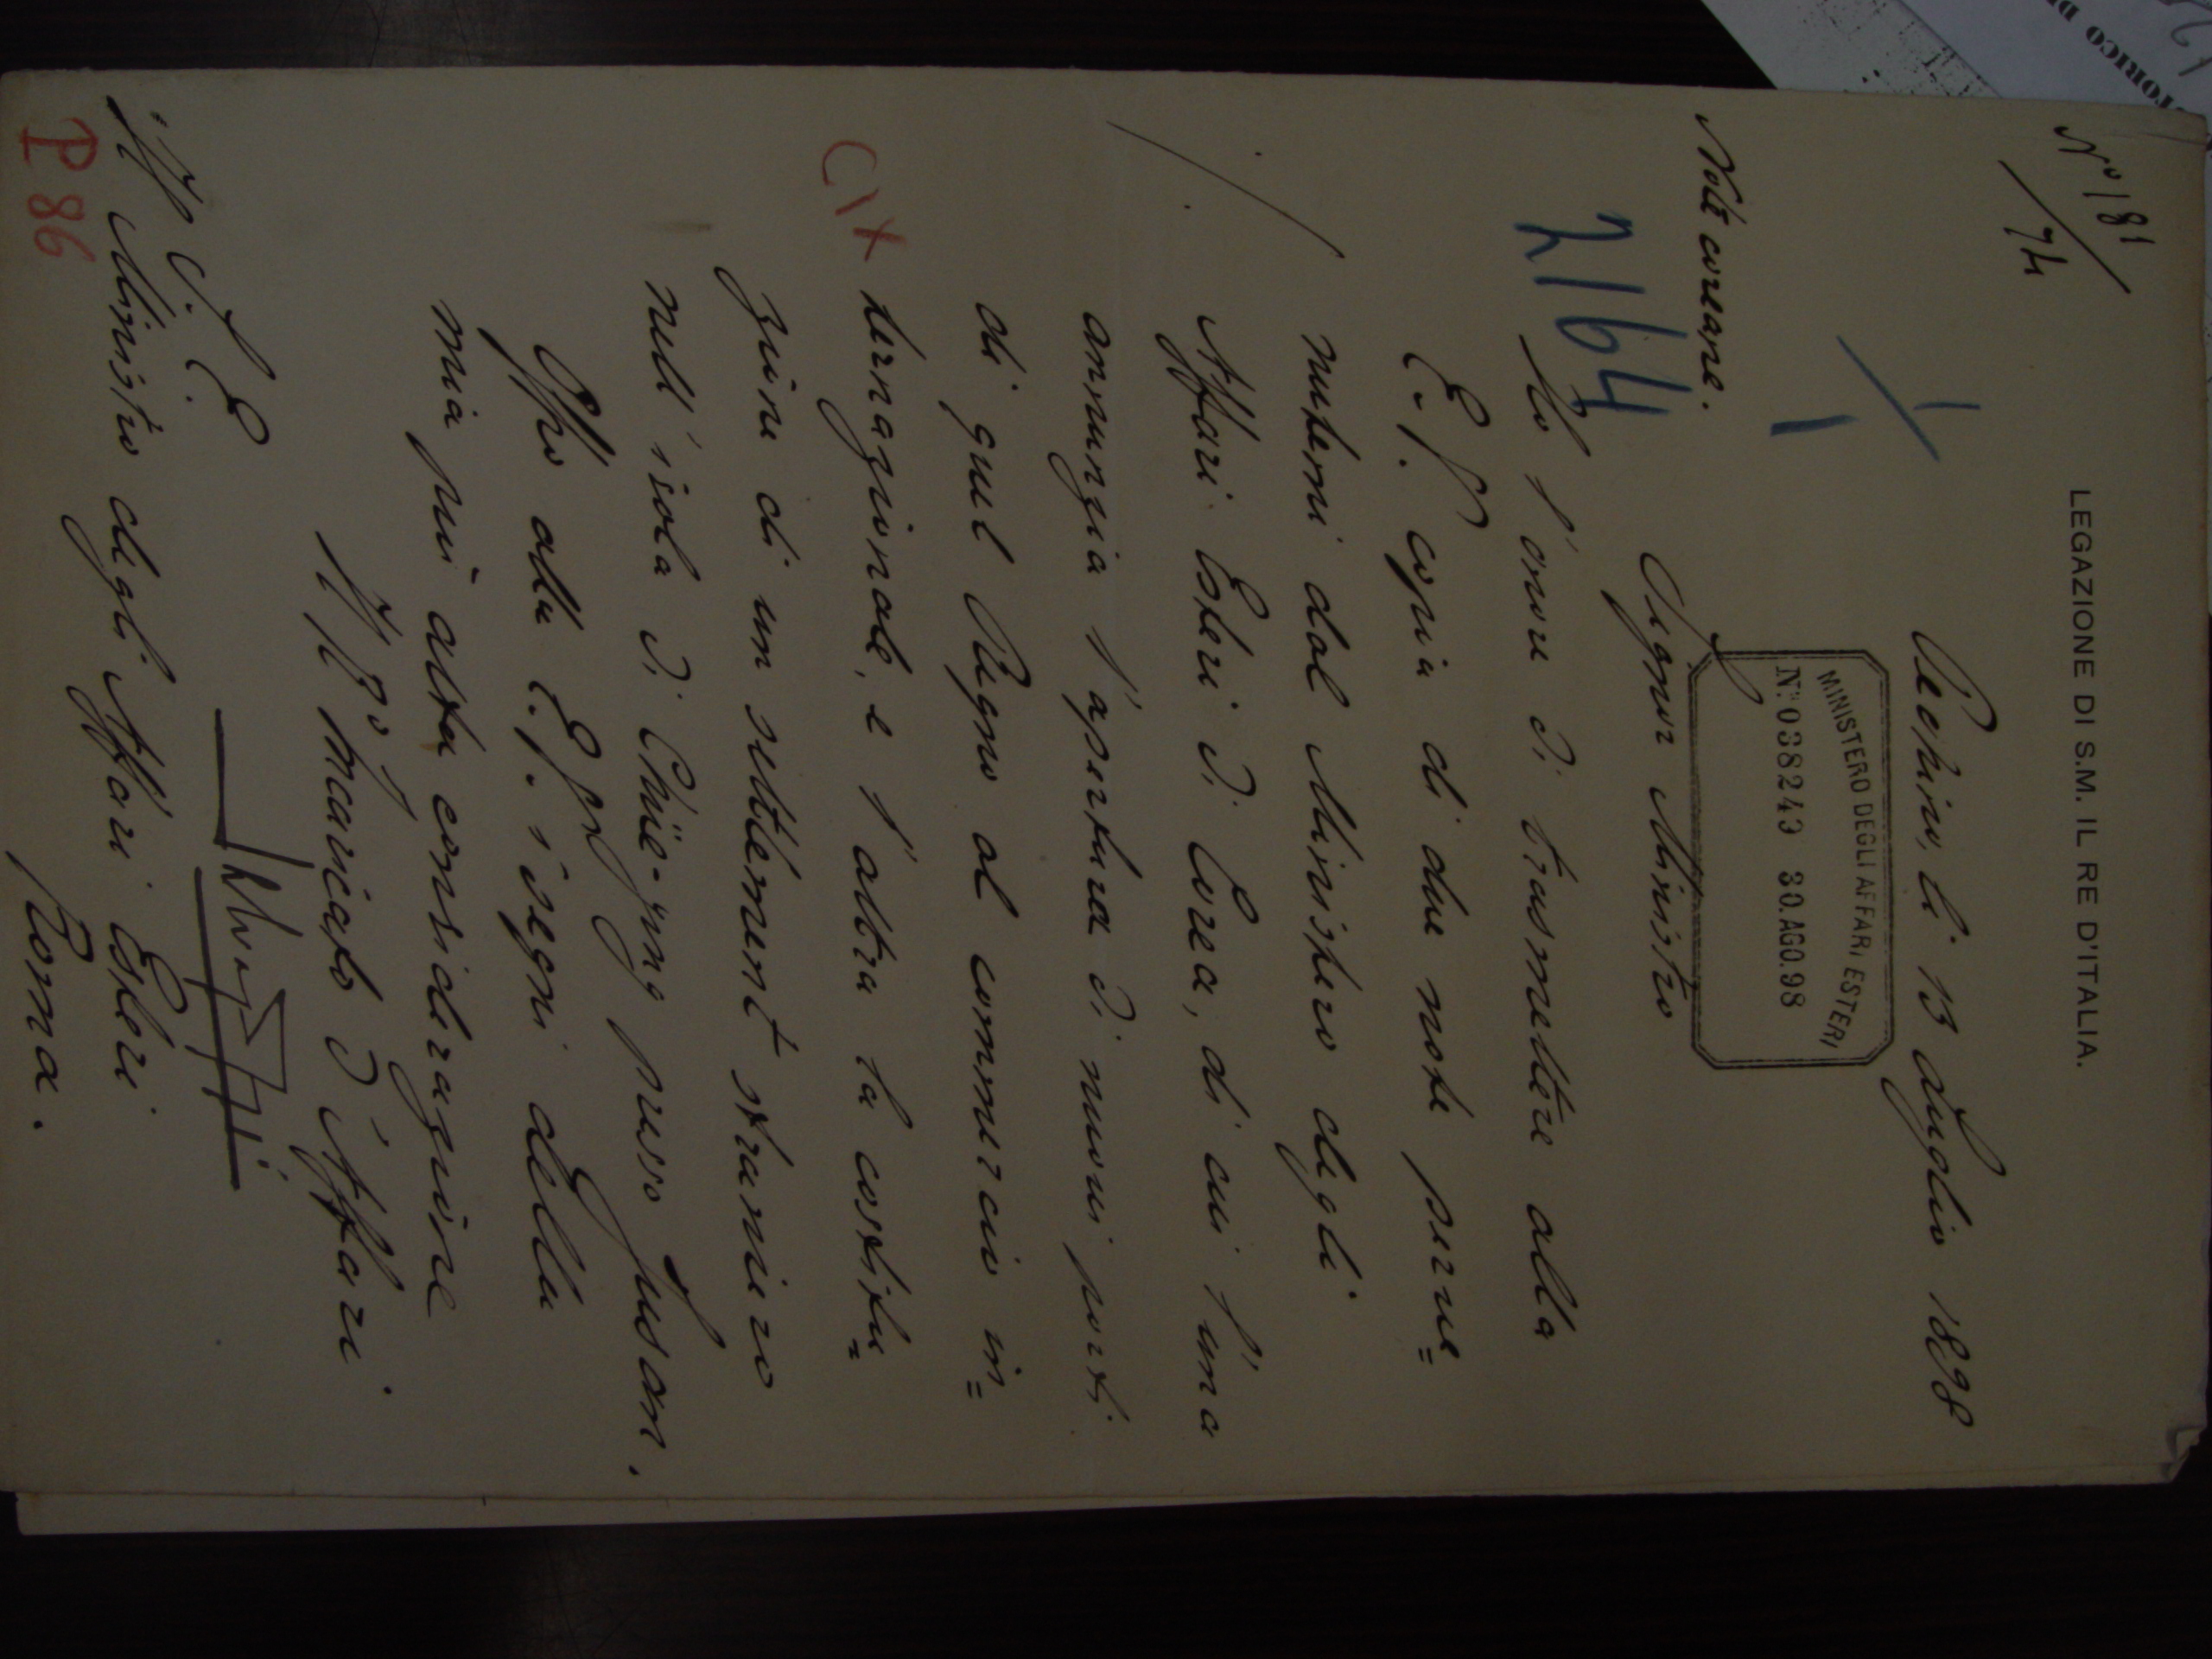 N° 181
/74
LEGAZIONE DI S.M. IL RE D'ITALIA.
Pechino, li 13 Luglio 1898
MINISTERO DEGLI AFFARI ESTERI
N.° 038243 30.AGO.98
Note coreane.
2164
Signor Ministro
Ho l'onore di trasmettere alla
E. V. copia di due note perve=
nutemi dal Ministero degli
Affari Esteri di Corea, di cui l'una
annunzia l'apertura di nuovi porti
di quel Regno al commercio in=
ternazionale, e l'altra la costitu=
zione di un settlement straniero
nell'isola di Chüe-yng presso Fusan.
Offro alla E. V. i segni della
mia più alta considerazione
Il R° Incaricato d'Affari
A S. E.
Il Ministro degli Affari Esteri
Roma.
P 86